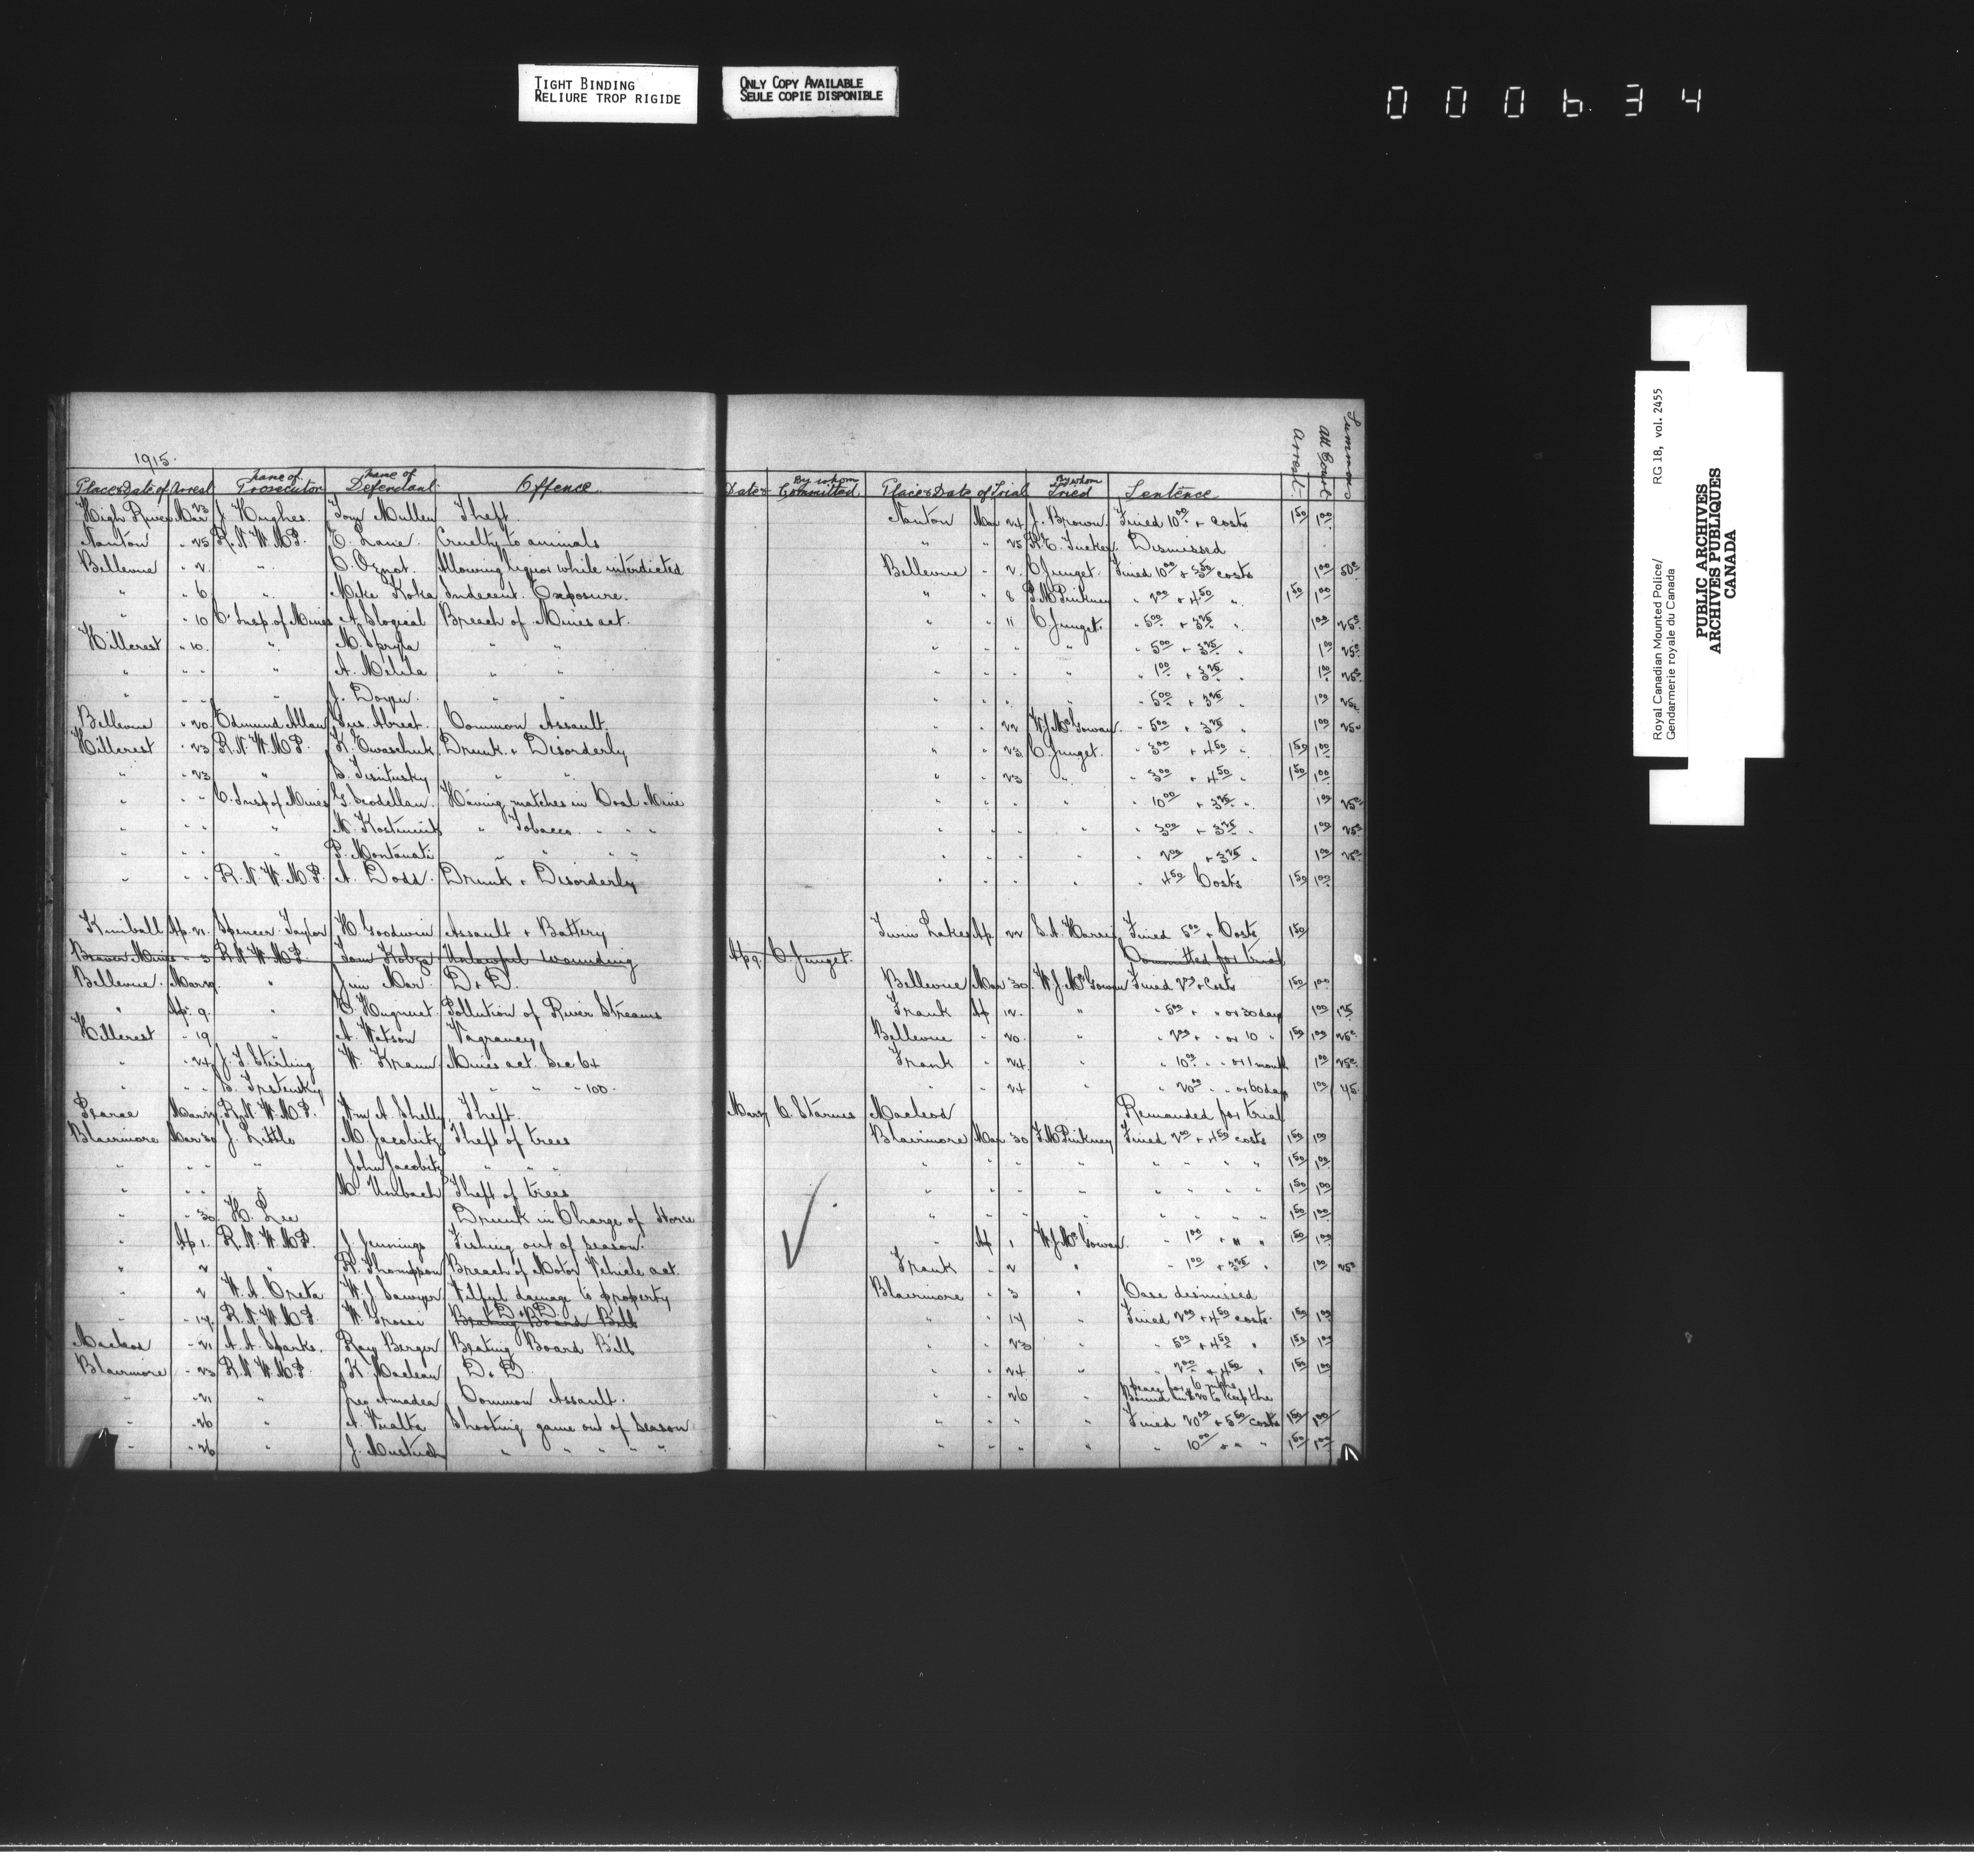 TIGHT BINDING
RELIURE TROP RIGIDE
ONLY COPY AVAILABLE
SEULE COPIE DISPONIBLE
000634
Royal Canadian Mounted Police/ RG 18, vol. 2455
Gendarmerie royale du Canada
PUBLIC ARCHIVES
ARCHIVES PUBLIQUES
CANADA
1915.
Place & Date of Arrest Name of Prosecutor Name of Defendant Offence Date & By whom Committed Place & Date of Trial By whom Tried Sentence Arrest Att Court Summons
High River Mar 23 J. Hughes. Tom Mullen Theft. Nanton Mar 24 J. Brown. Fined 10.00 + Costs 1.50 1.00
Nanton " 25 R.N.W.M.P. C. Lane. Cruelty to animals " " 25 Tucker. Dismissed
Bellevue " 2. " Allowing liquor while interdicted Bellevue " 2. C. Junget. Fined 10.00 + 3.50 costs 1.00 50c
" " 6 " Mike Koka Indecent Exposure. " " 8 Pinkney " 2.00 + 4.50 " 1.50 1.00
" " 10 C. Insp. of Mines A. Slogical Breach of Mines act. " " 11 C. Junget. " 5.00 + 3.25 " 1.00 25c
Hillcrest " 10. " M. Spryta " " " " " " " 5.00 + 3.25 " 1.00 25c
" " " " A. Milila " " " " " " " 1.00 + 3.25 1.00 25c
" " " " J. " " " " " " 5.00 + 3.25 " 1.00 25c
Bellevue " 20. Edmund Allan Common Assault. " " 22 W.J. McGowan. " 5.00 + 3.25 " 1.00 25c
Hillcrest " 23 R.N.W.M.P. K. Ewaschuk. Drunk + Disorderly " " 23 C. Junget. " 3.00 + 4.50 " 1.50 1.00
" " 23 " " " " " 23 " " 3.00 + 4.50 " 1.50 1.00
" " " C. Insp of Mines G. Scodellan. Having matches in Coal Mine " " " " " 10.00 + 3.25 " 1.00 25c
" " " " M. " Tobacco " " " " " " " " 3.00 + 3.25 " 1.00 25c
" " " " P. Montanati " " " " " " " " " 2.00 + 3.25 " 1.00 25c
" " " R.N.W.M.P. A. Dodd. Drunk + Disorderly " " " " " 4.50 Costs 1.50 1.00
Kimball Ap. 21. Spencer Taylor H. Goodwin Assault + Battery Twin Lakes Ap 22 S.A. Harris Fined 5.00 + Costs 1.50
Beaver Mines " 3 R.N.W.M.P. Sam Unlawful wounding Ap 9. C. Junget. Committed for trial
Bellevue. Mar " Jim Mar. D + D. Bellevue Mar 30. W.J. McGowan Fined 2.00 + Costs 1.50 1.00
" Ap. 9. " C. Hugnuet Pollution of River Streams Frank Ap 12. " " 5.00 + " or 30 days 1.00
Hillcrest " 19 " A. Watson Vagrancy Bellevue " 20. " " 2.00 + " or 10 " 1.50 1.00 25c
" " 24 J.T. Stirling W. Kraun Mines act. Sec 64 Frank " 24. " " 10.00 " " or 1 month 1.00 25c
" " " " " " 100. " " 24 " " 20.00 " " or 60 days 1.00 45.
Pearce Mar R.N.W.M.P. Wm A. Shelly Theft. Mar C. Starnes Macleod Remanded for trial
Blairmore Mar 30 J. Little M. Jacobitz Theft of trees Blairmore Mar 30 Pinkney Fined 2.00 + 4.50 costs 1.50 1.00
" " " " John Jacobitz " " " " " " " " " " 1.50 1.00
" " " " M. Umbach Theft of trees " " " " " " " 1.50 1.00
" " 30 H. Lee Drunk in Charge of Horse " " " " " " " 1.50 1.00
" Ap 1. R.N.W.M.P. J. Jennings Fishing out of season. " Ap 1 W.J. McGowan. " 1.00 + " " 1.50 1.00
" " 2 " R. Thompson Breach of Motor Vehicle act. Frank " 2 " " 1.00 + 3.25 " 1.00 25c
" " 2 W.A. W.J. Sawyer Wilful damage to property Blairmore " 3 " Case dismissed
" " 14. R.N.W.M.P. W. Grossi D + D. Beating Board Bill " " 14 " Fined 2.00 + 4.50 costs. 1.50 1.00
Macleod " 21 A.A. Sparks. Ray Berger Beating Board Bill " " 23 " " 5.00 + 4.50 " 1.50 1.00
Blairmore " 23 R.N.W.M.P. K. Maclean D + D. " " 24 " " 2.00 + 4.50 " 1.50 1.00
" " 21 " Amadea Common Assault. " " 26 " Bound to keep the peace for 6 mths
" " 26 " A. Shooting game out of season " " " " Fined 20.00 + 5.50 costs 1.50 1.00
" " 26 " J. " " " " " " " " " " 10.00 + " " 1.50 1.00